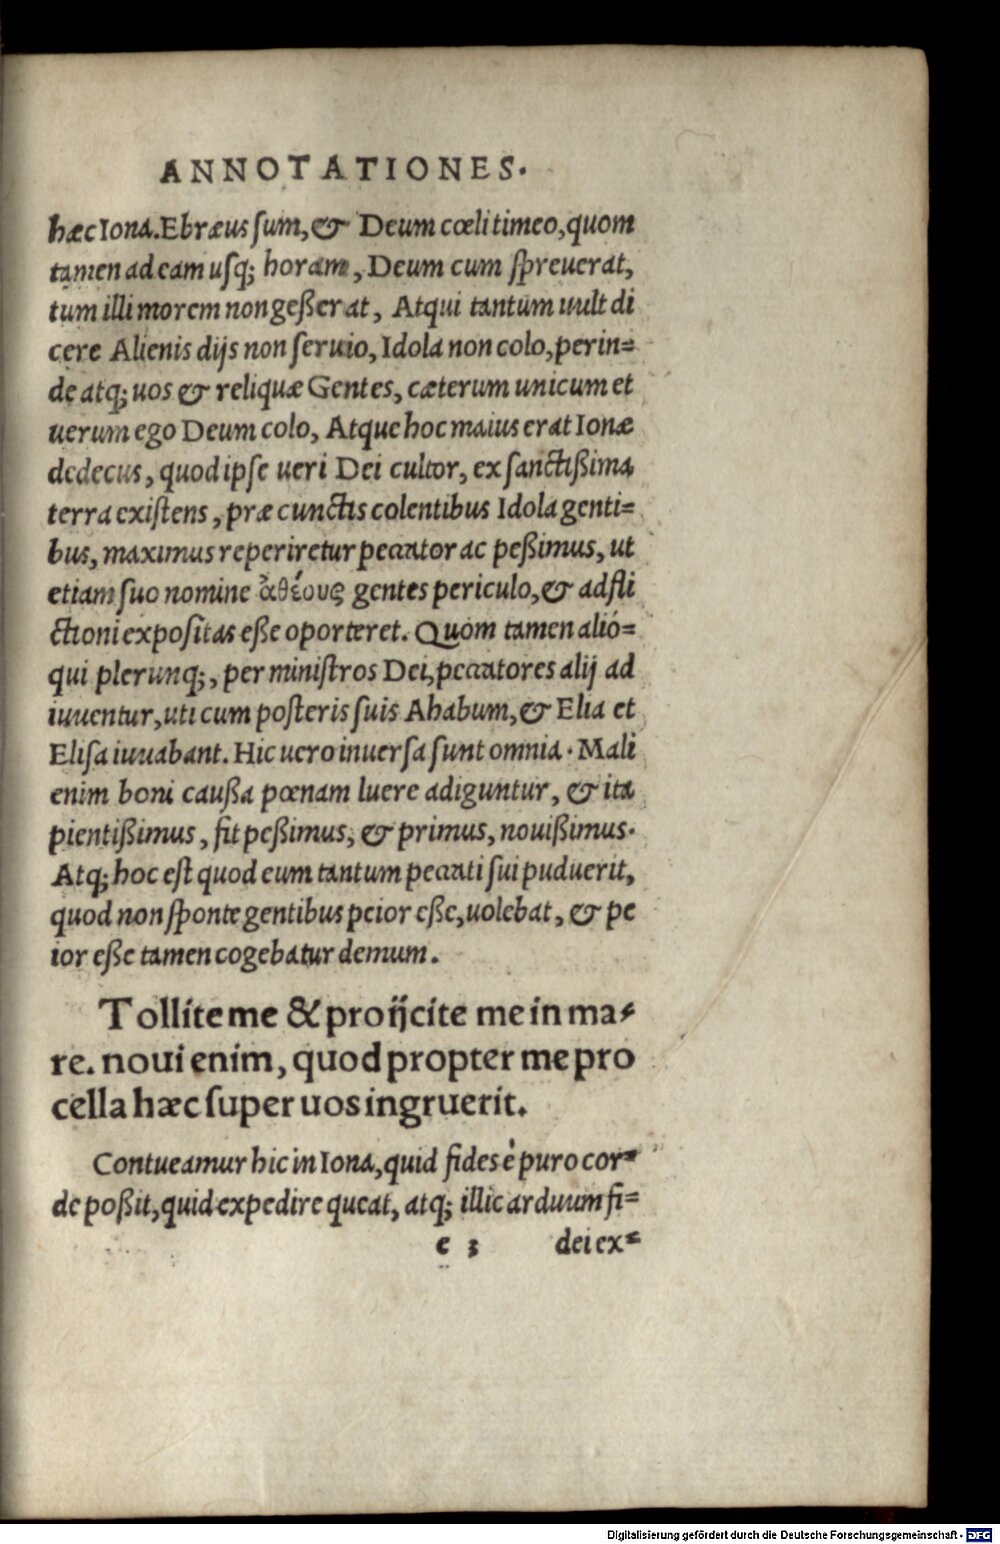 ANNOTATIONES.
hæc Iona. Ebræus sum, & Deum cœli timeo, quom
tamen ad eam usq; horam, Deum cum spreuerat,
tum illi morem non geßerat, Atqui tantum uult di
cere Alienis dijs non seruio, Idola non colo, perin=
de atq; uos & reliquæ Gentes, cæterum unicum et
uerum ego Deum colo, Atque hoc maius erat Ionæ
dedecus, quod ipse ueri Dei cultor, ex sanctißima
terra existens, præ cunctis colentibus Idola genti=
bus, maximus reperiretur peccator ac peßimus, ut
etiam suo nomine ἀθέους gentes periculo, & adfli
ctioni expositas eße oporteret. Quom tamen alió=
qui plerunq;, per ministros Dei, peccatores alij ad
iuuentur, uti cum posteris suis Ahabum, & Elia et
Elisa iuuabant. Hic uero inuersa sunt omnia. Mali
enim boni caußa pœnam luere adiguntur, & ita
pientißimus, fit peßimus, & primus, nouißimus.
Atq; hoc est quod eum tantum peccati sui puduerit,
quod non sponte gentibus peior eße, uolebat, & pe
ior eße tamen cogebatur demum.
Tollite me & proijcite me in ma=
re. noui enim, quod propter me pro
cella hæc super uos ingruerit.
Contueamur hic in Iona, quid fides è puro cor=
de poßit, quid expedire queat, atq; illic arduum fi=
e 3 dei ex=
Digitalisierung gefördert durch die Deutsche Forschungsgemeinschaft - DFG